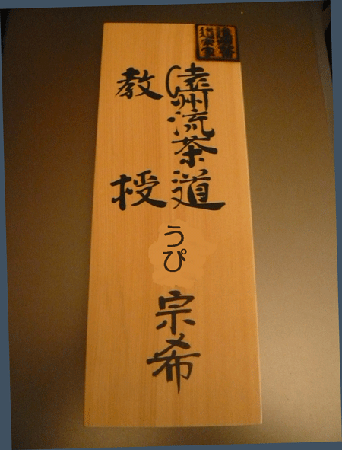 遠州流茶道
教授
うぴ
宗希